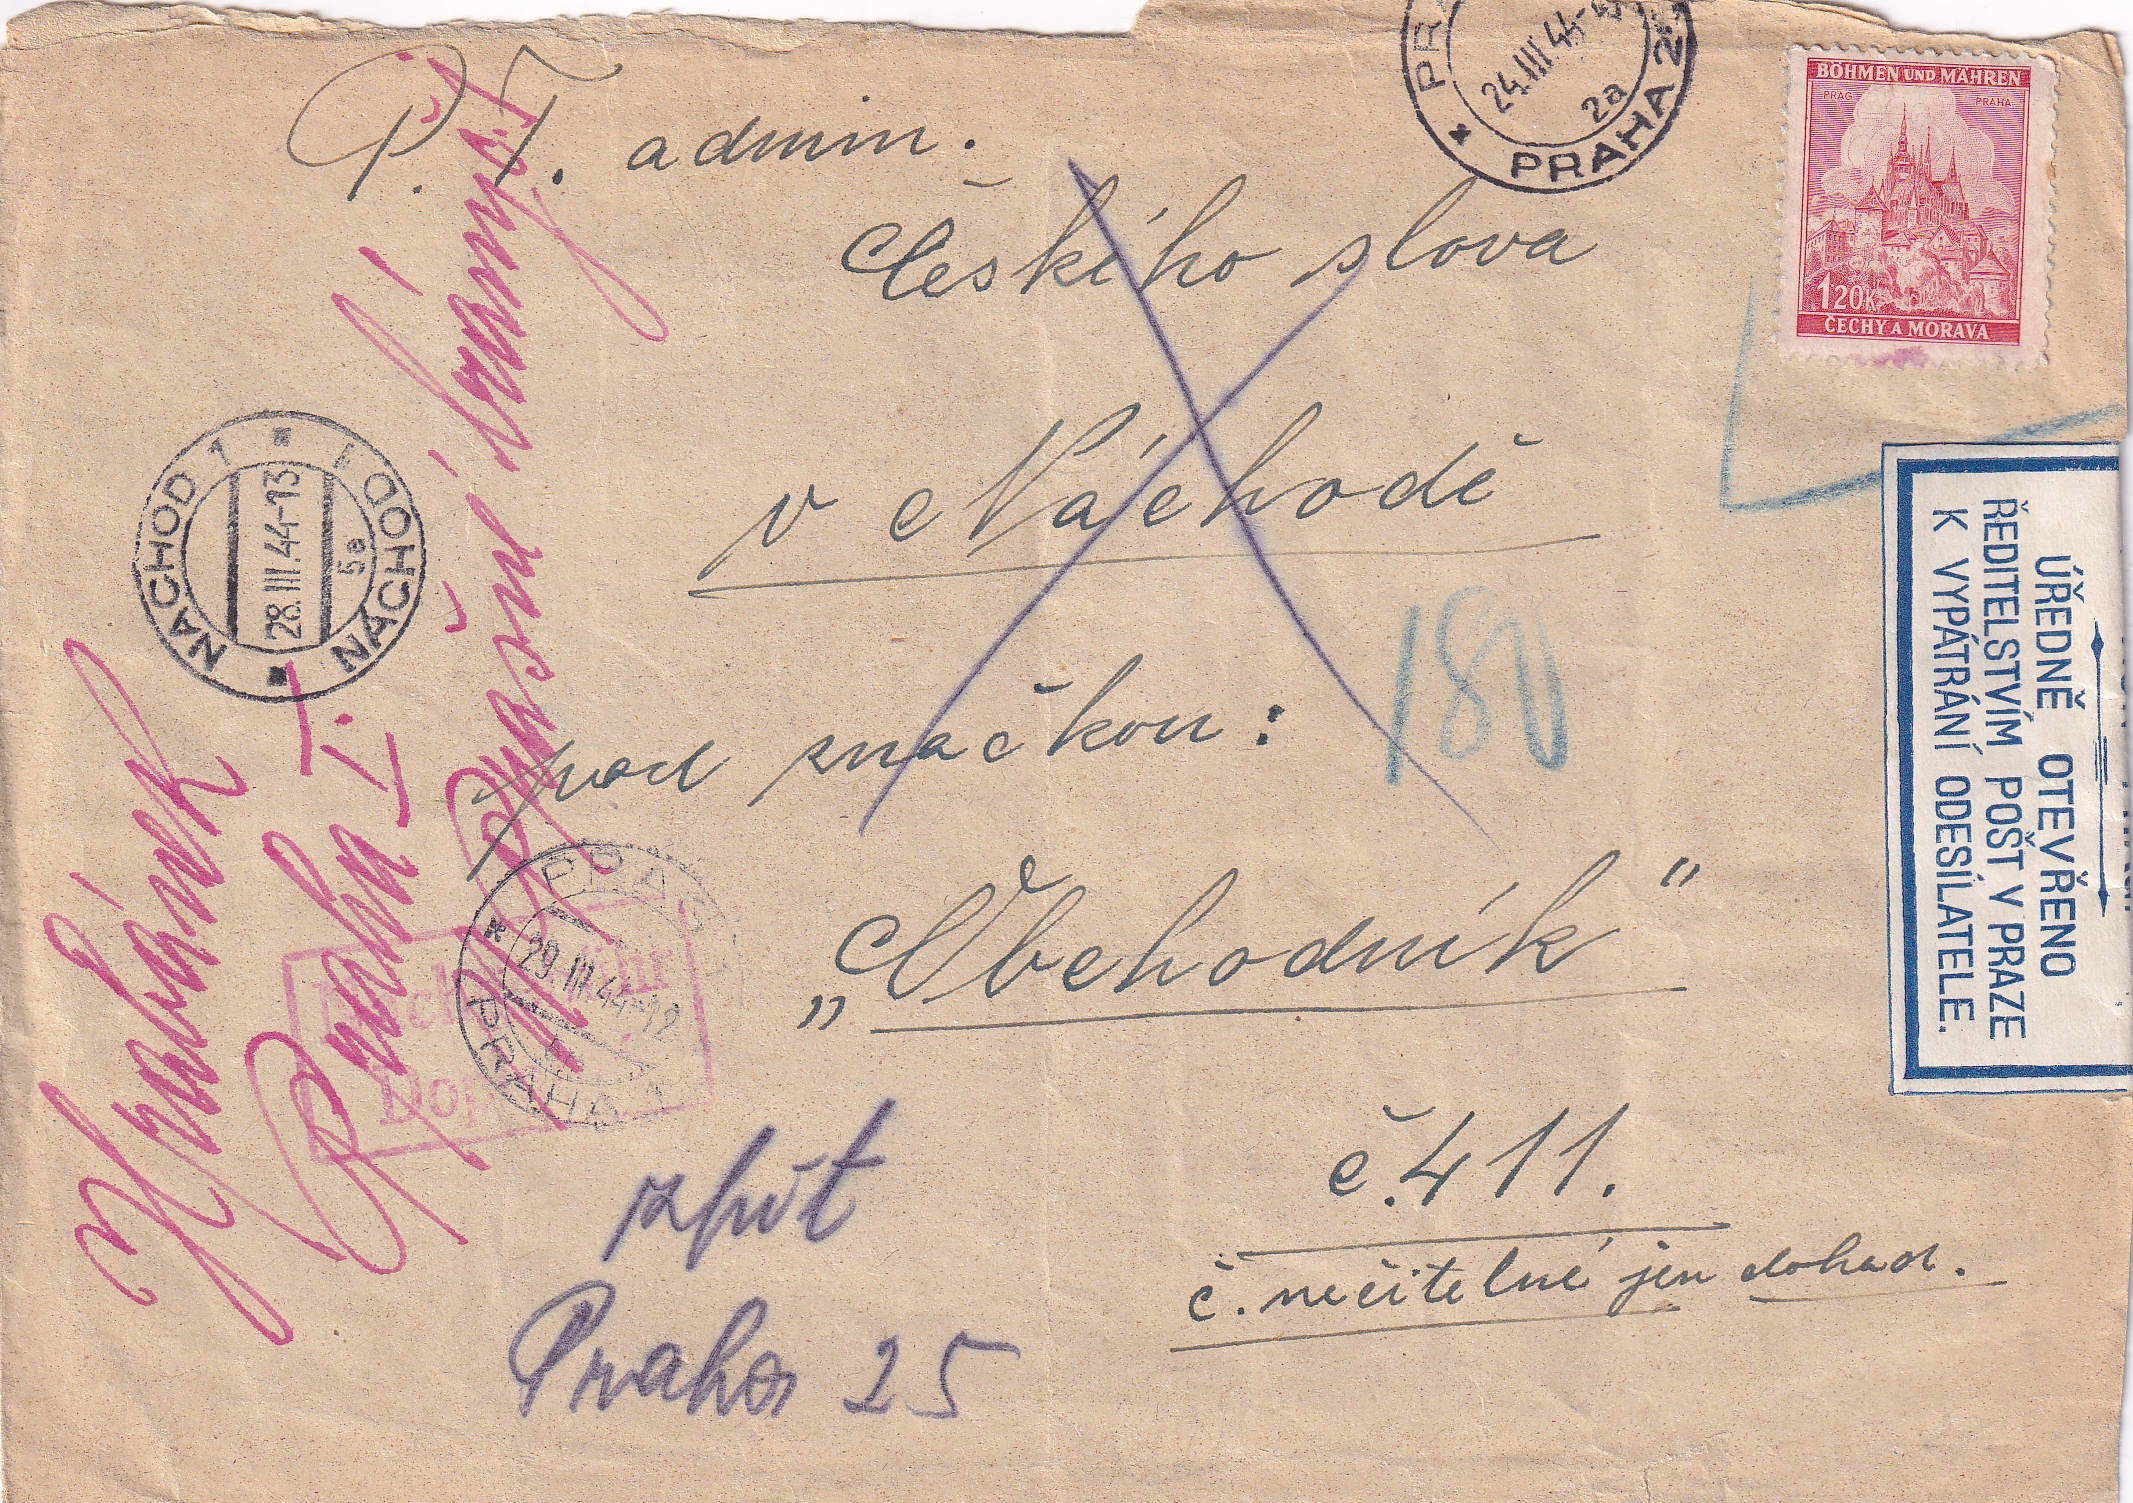 P.T. admin.
Českého slova
v Náchodě
pod značkou:
„Obchodník"
č. 411.
č. nečitelné jen dohad.
180
zpět
Praha 25
Hrabánek
Praha I.
PRAHA 25
24.III.44
2a
BÖHMEN UND MÄHREN
PRAG PRAHA
1.20K
ČECHY A MORAVA
NACHOD 1 * NÁCHOD 1
28.III.44-13
5a
PRAG
29.III.44-12
PRAHA 1
ÚŘEDNĚ OTEVŘENO
ŘEDITELSTVÍM POŠT V PRAZE
K VYPÁTRÁNÍ ODESÍLATELE.